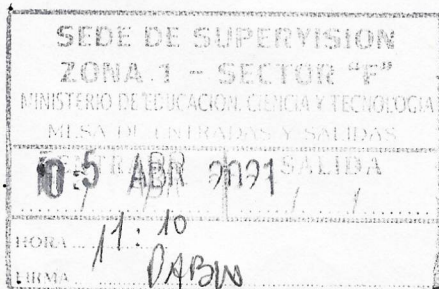 SEDE DE SUPERVISION
ZONA 1 - SECTOR "F"
MINISTERIO DE EDUCACION, CIENCIA Y TECNOLOGIA
MESA DE ENTRADAS Y SALIDAS
ENTRADA SALIDA
05 ABR 2021
HORA 11:10
FIRMA